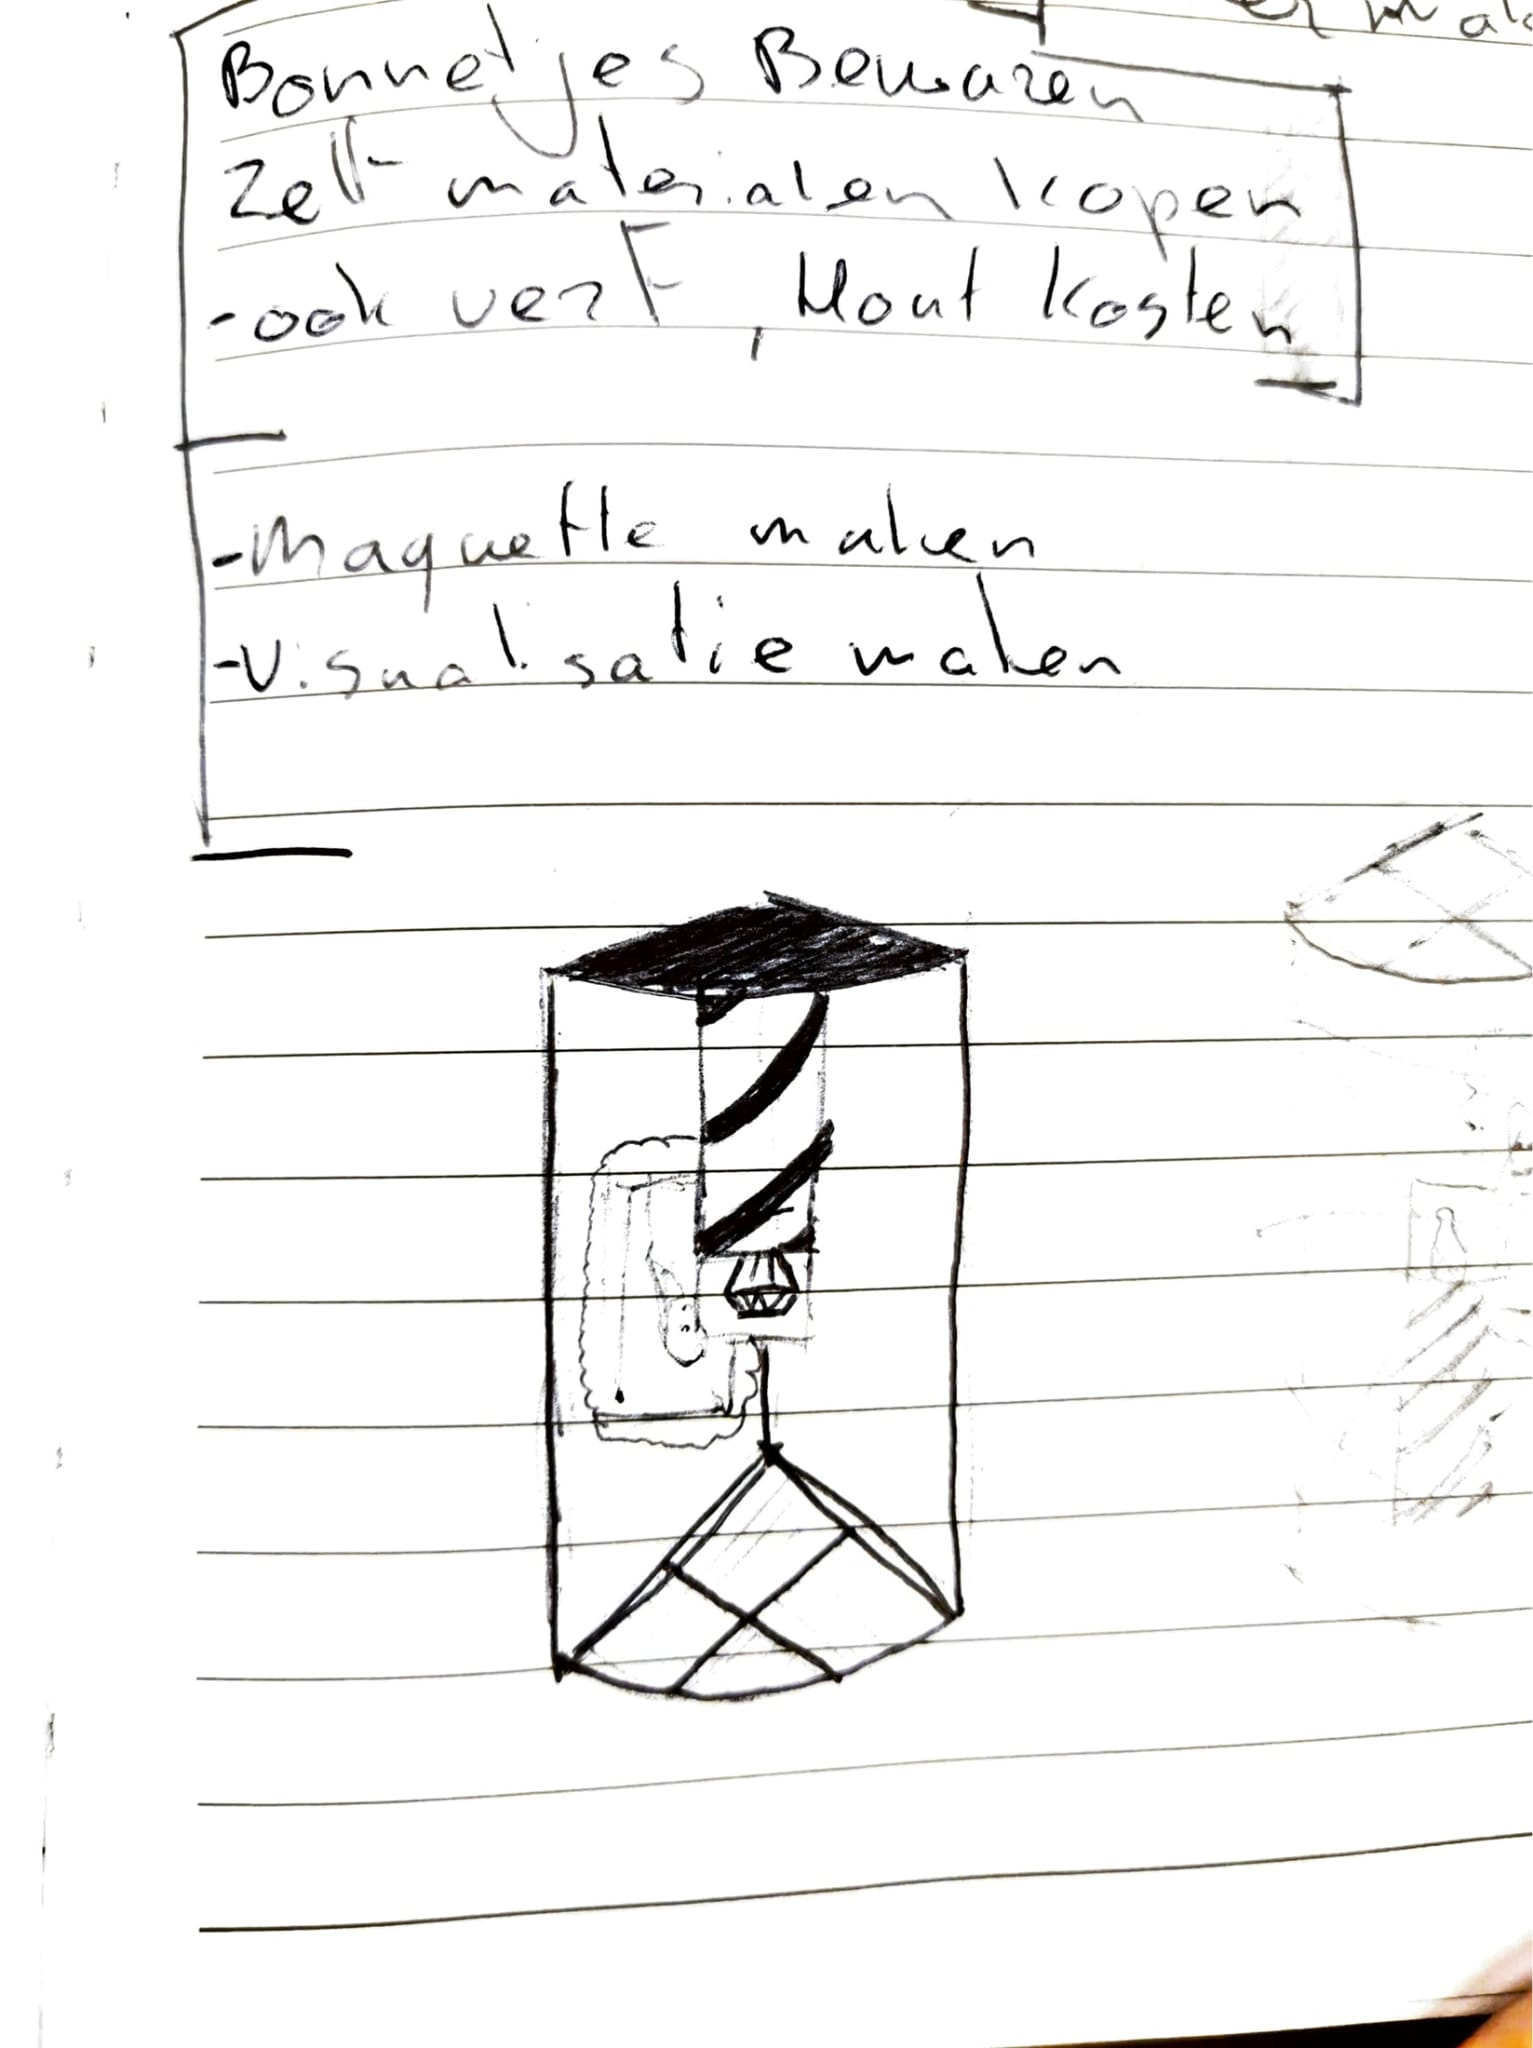 Bonnetjes Bewaren
Zelf materialen kopen
-ook verf, Hout kosten
-Maquette maken
-Visualisatie maken